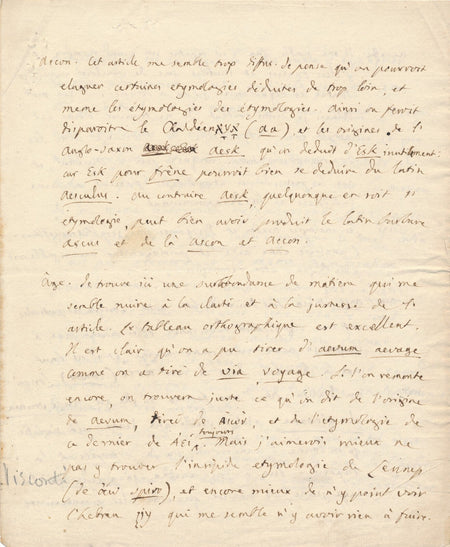 Ascon. Cet article me semble trop diffus. Je pense qu'on pourroit
elaguer certaines etymologies déduites de trop loin, et
meme les etymologies des etymologies. Ainsi on feroit
disparoitre le Chaldéen (aa) et les origines de l'
anglo-saxon aesk qu'on deduit d'Esk inutilement;
car Esk pour frêne pourroit bien se deduire du latin
aesculus. au contraire aesk, quelquonque en soit l'
etymologie, peut bien avoir produit le latin barbare
ascus et de là ascon et accon.
Âge. Je trouve ici une surabondance de matiere qui me
semble nuire à la clarté et à la justesse de l'
article. Le tableau orthographique est excellent.
Il est clair qu'on a pu tirer d'aevum aevage
comme on a tiré de via voyage. Si l'on remonte
encore, on trouvera juste ce qu'on dit de l'origine
de aevum, tiré de αἰών, et de l'etymologie de
ce dernier de ἀεὶ toujours. Mais j'aimerois mieux ne
pas y trouver l'insipide etymologie de Lennep
Visconti
(de ἄω spiro), et encore mieux de n'y point voir
l'hebreu qui me semble n'y avoir rien à faire.